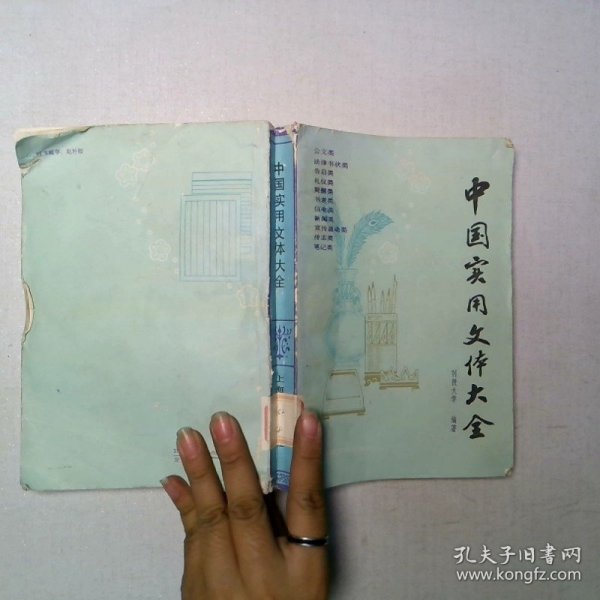 公文类
法律书状类
告启类
礼仪类
契据类
书表类
信电类
新闻类
宣传鼓动类
传志类
笔记类
中国实用文体大全
编著
中国实用文体大全
上海
孔夫子旧书网
www.kongfz.com